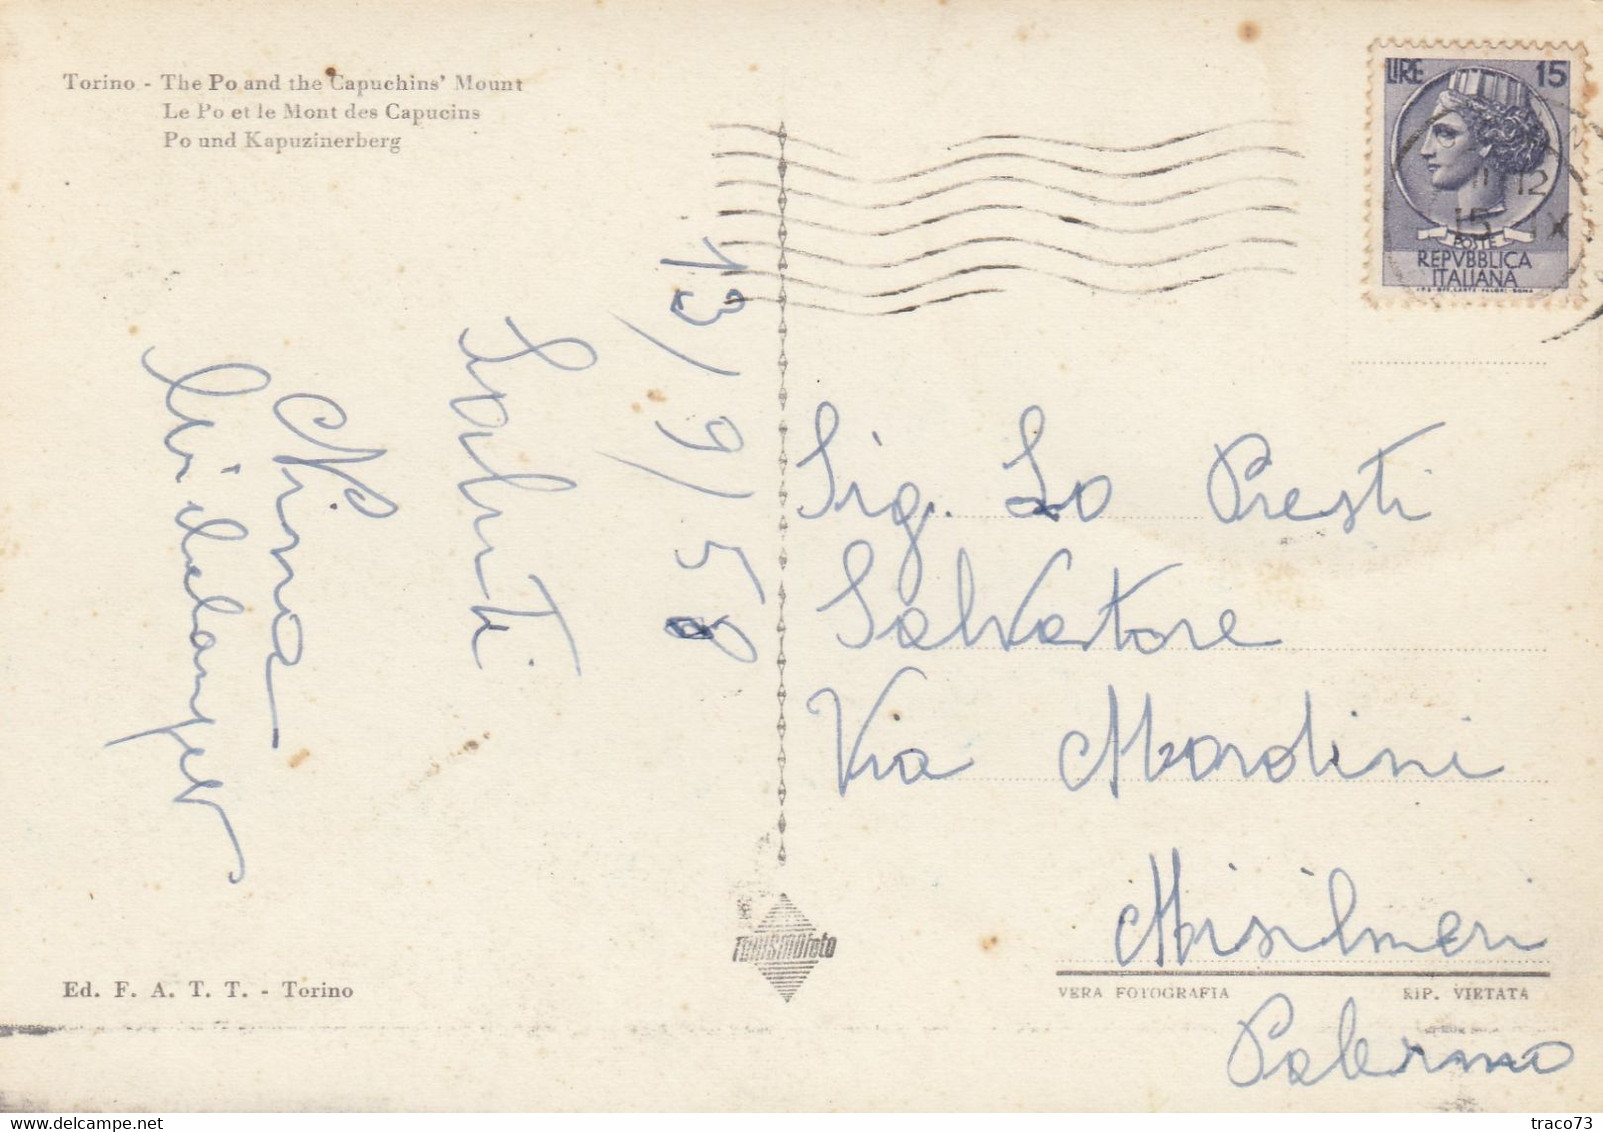 Torino - The Po and the Capuchins' Mount
Le Po et le Mont des Capucins
Po und Kapuzinerberg
LIRE 15
12
15 IX
POSTE
REPVBBLICA
ITALIANA
13/9/58
Saluti
Nina
Michelangelo
Sig. Lo Presti
Salvatore
Via Mandini
Misilmeri
Palermo
TURISMOfoto
Ed. F. A. T. T. - Torino
VERA FOTOGRAFIA RIP. VIETATA
delcampe.net
traco73